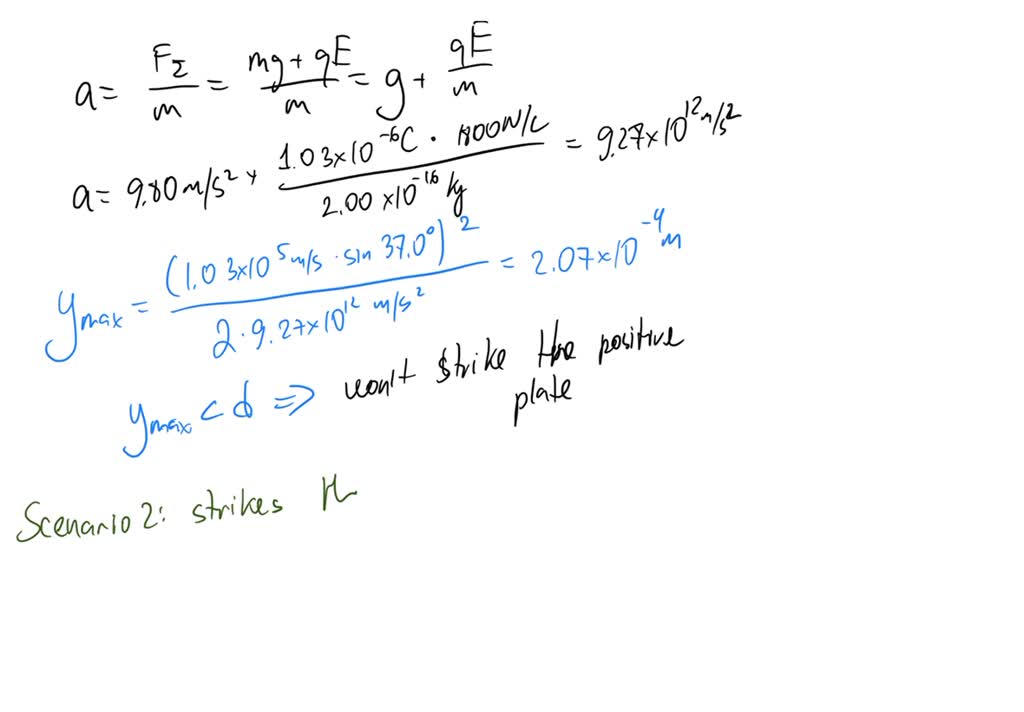 a = F_Σ / m = (mg + qE) / m = g + qE / m
a = 9.80 m/s² + (1.03×10⁻⁶ C · 1800 N/C) / (2.00×10⁻¹⁶ kg) = 9.27×10¹² m/s²
y_max = (1.03×10⁵ m/s · sin 37.0°)² / (2·9.27×10¹² m/s²) = 2.07×10⁻⁴ m
y_max < d ⇒ won't strike the positive
plate
Scenario 2: strikes